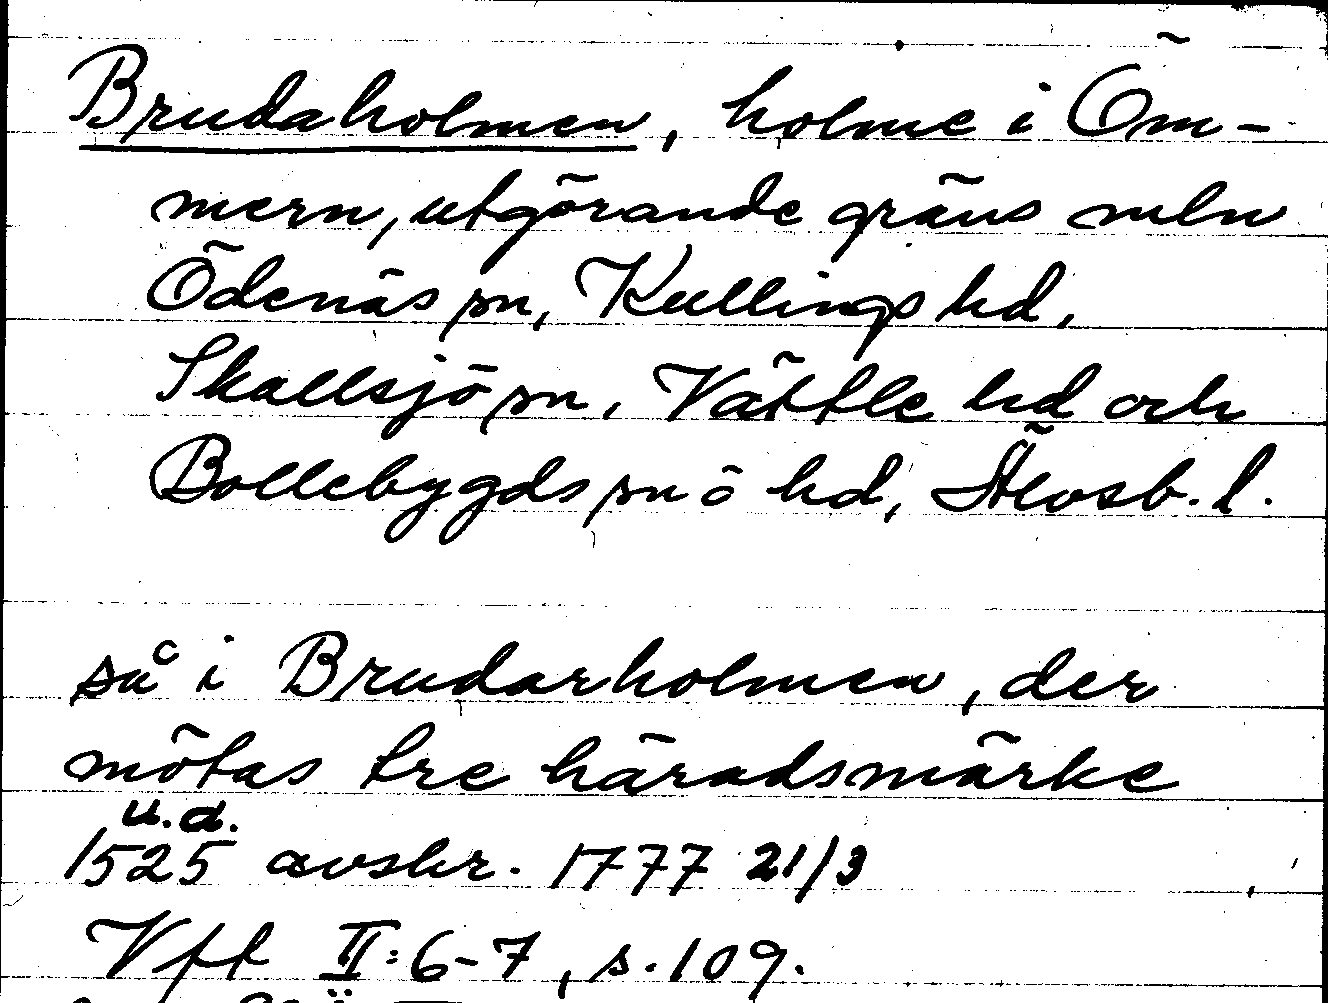 Brudaholmen, holme i Öm-
mern, utgörande gräns mln
Ödenäs sn, Kullings hd,
Skallsjö sn, Vättle hd och
Bollebygds sn ö hd, Älvsb. l.
så i Brudarholmen, der
mötas tre häradsmärke
u.d.
1525 avskr. 1777 21/3
Vft II:6-7, s.109.